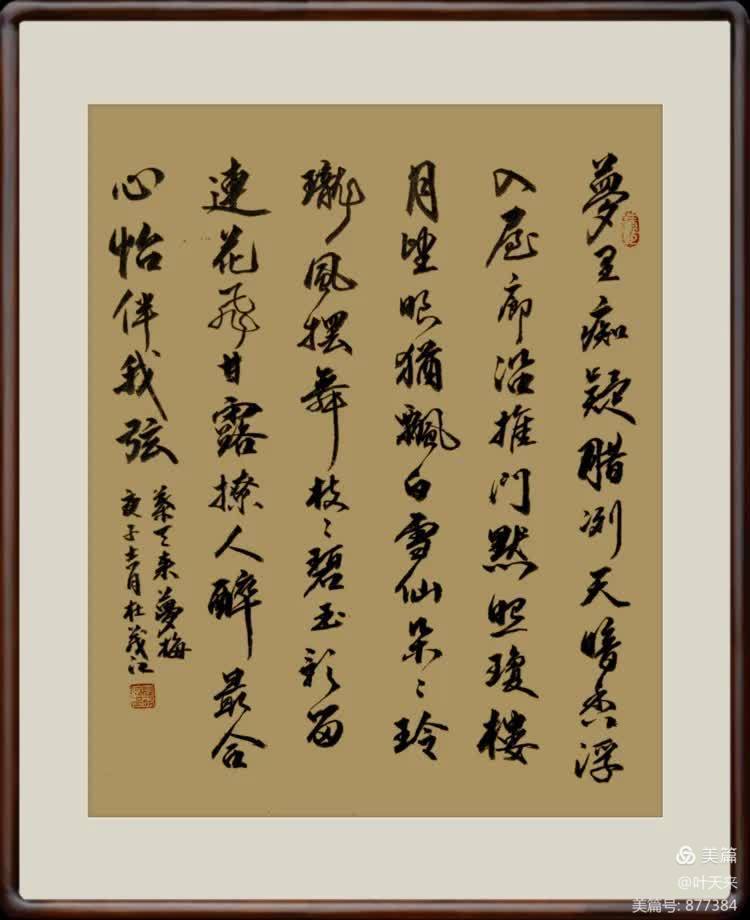 夢里痴疑腊冽天暗香浮
入屋廊沿推门默照瓊樓
月望眼猶飄白雪仙朵〻玲
瓏風摆舞枝〻碧玉彩留
連花飛甘露撩人醉最合
心怡伴我弦
葉天来夢梅
庚子月杜茂江
美篇
@叶天来
美篇号: 877384